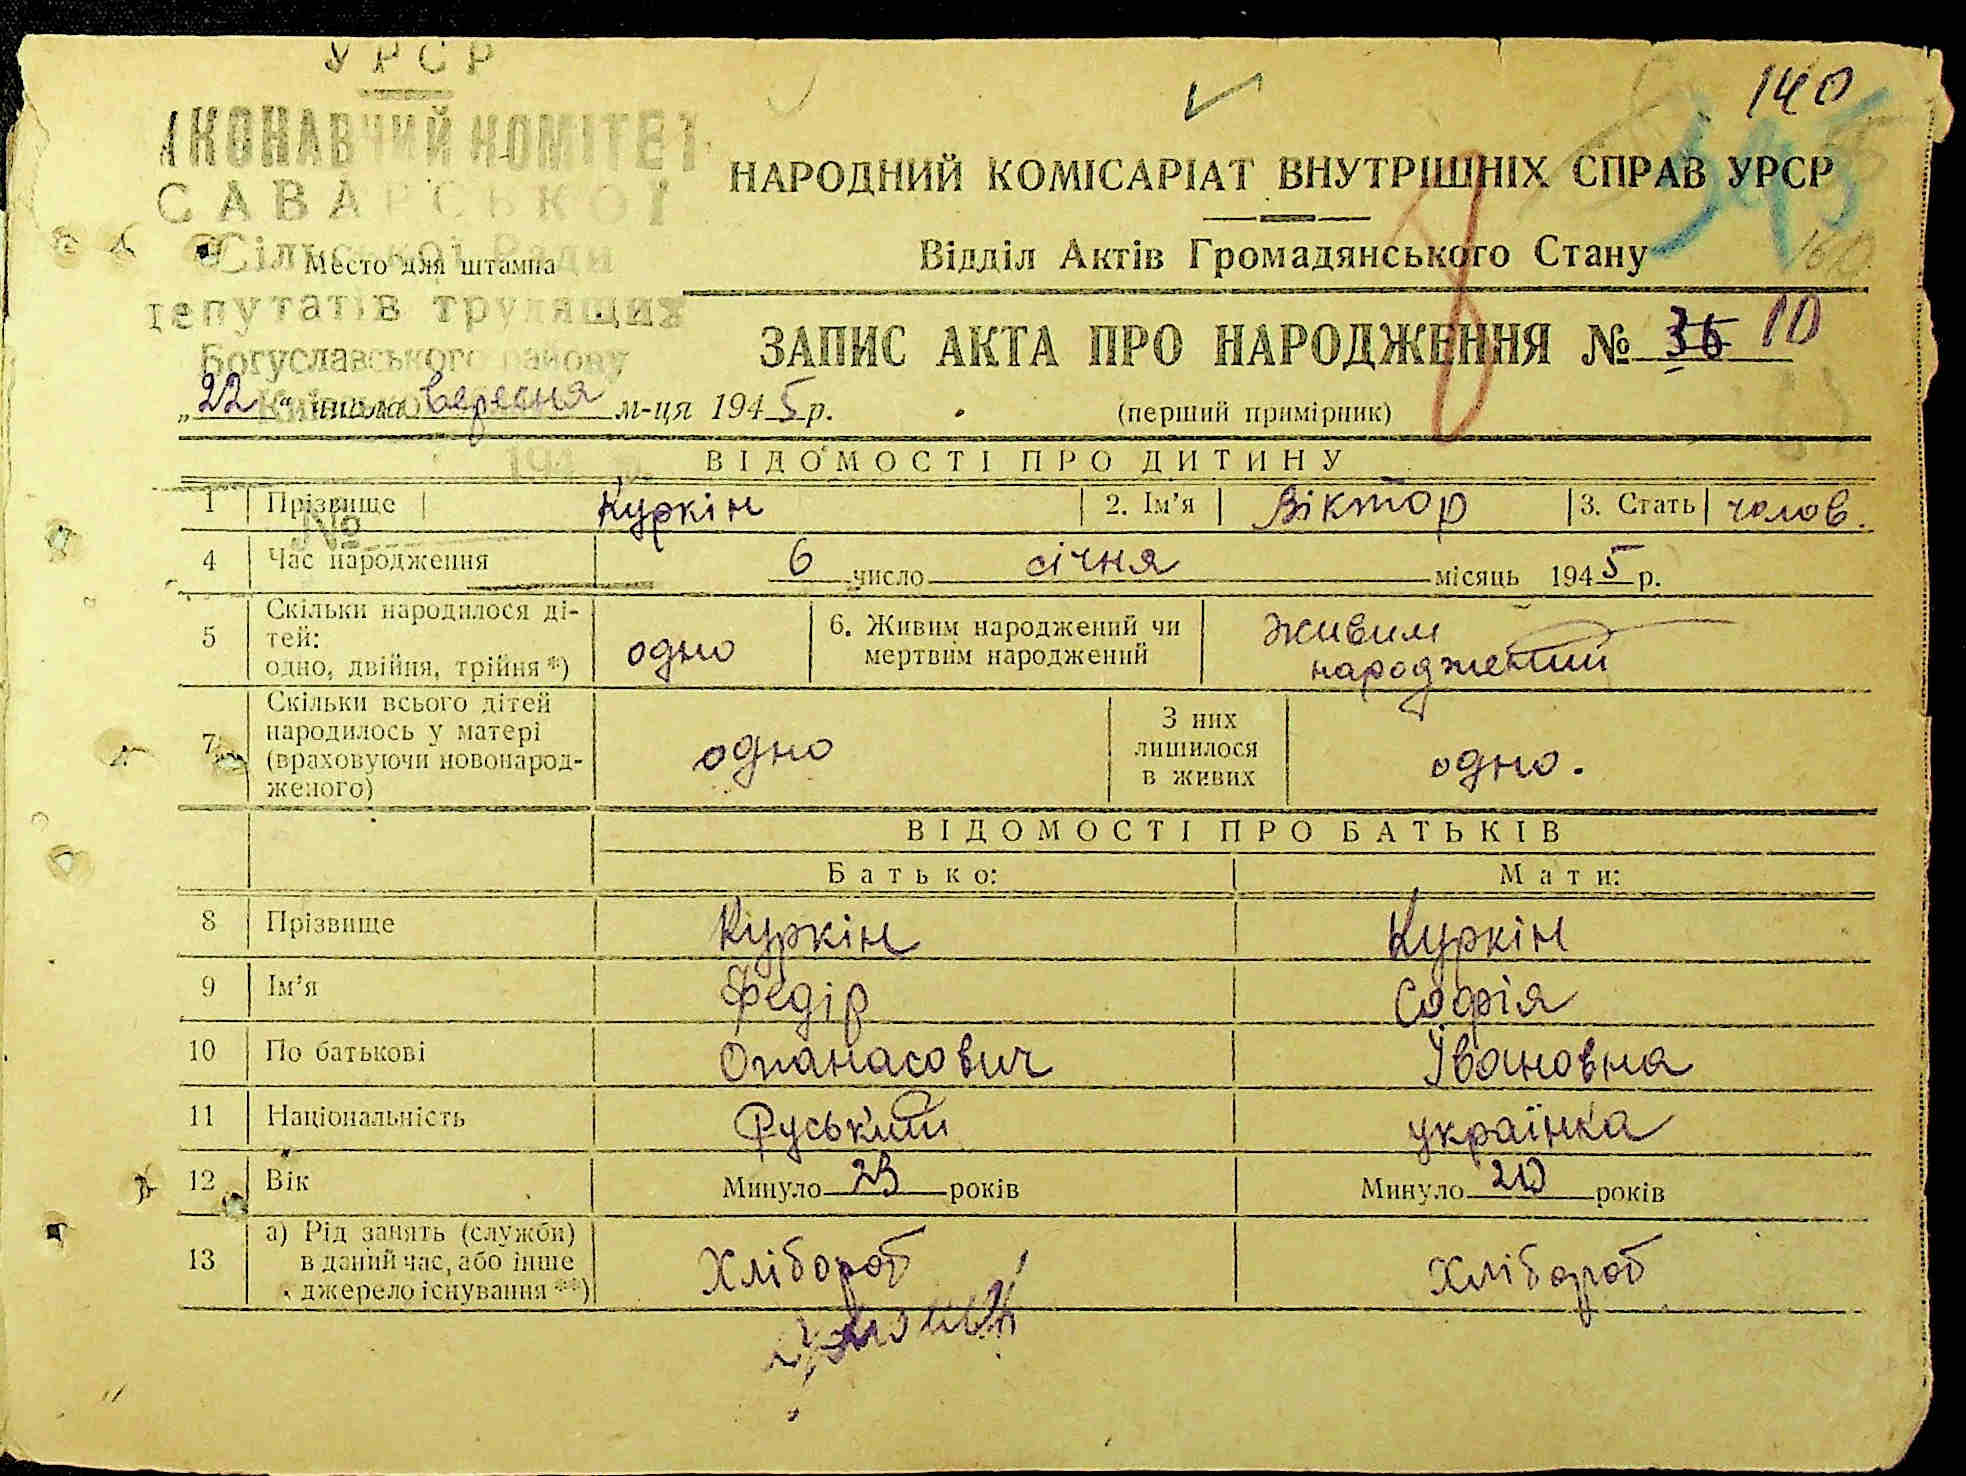 УРСР
140
КОНАВЧИЙ КОМІТЕТ
САВАРСЬКОЇ
НАРОДНИЙ КОМІСАРІАТ ВНУТРІШНІХ СПРАВ УРСР
Сільської Ради
Место для штампа
Відділ Актів Громадянського Стану
депутатів трудящих
Богуславського району
ЗАПИС АКТА ПРО НАРОДЖЕННЯ № 36 10
„22“ числа вересня м-ця 1945 р.
(перший примірник)
194 р.
ВІДОМОСТІ ПРО ДИТИНУ
1 Прізвище Куркін 2. Ім'я Віктор 3. Стать чолов.
№
4 Час народження 6 число січня місяць 1945 р.
5 Скільки народилося ді-
тей:
одно, двійня, трійня *) одно 6. Живим народжений чи
мертвим народжений Живим
народжений
7 Скільки всього дітей
народилось у матері
(враховуючи новонарод-
женого) одно З них
лишилося
в живих одно.
ВІДОМОСТІ ПРО БАТЬКІВ
Батько: Мати:
8 Прізвище Куркін Куркін
9 Ім'я Федір Софія
10 По батькові Опанасович Івановна
11 Національність Руський українка
12 Вік Минуло 23 років Минуло 20 років
13 а) Рід занять (служби)
в даний час, або інше
джерело існування **) Хлібороб Хлібороб